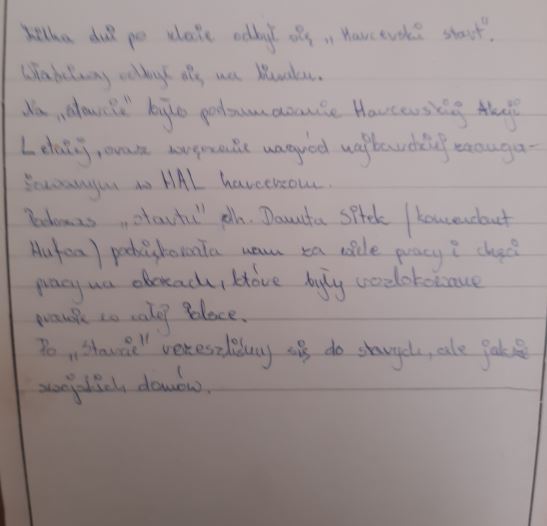 Kilka dni po zlocie odbył się „Harcerski start".
Właściwy odbył się na biwaku.
Na „starcie" było podsumowanie Harcerskiej Akcji
Letniej, oraz wręczenie nagród najbardziej zaanga-
żowanym w HAL harcerzom.
Podczas „startu" dh. Danuta Sitek /komendant
Hufca/ podziękowała nam za wiele pracy i chęci
pracy na obozach, które były rozlokowane
prawie po całej Polsce.
Po „starcie" rozeszliśmy się do starych, ale jakże
swojskich domów.